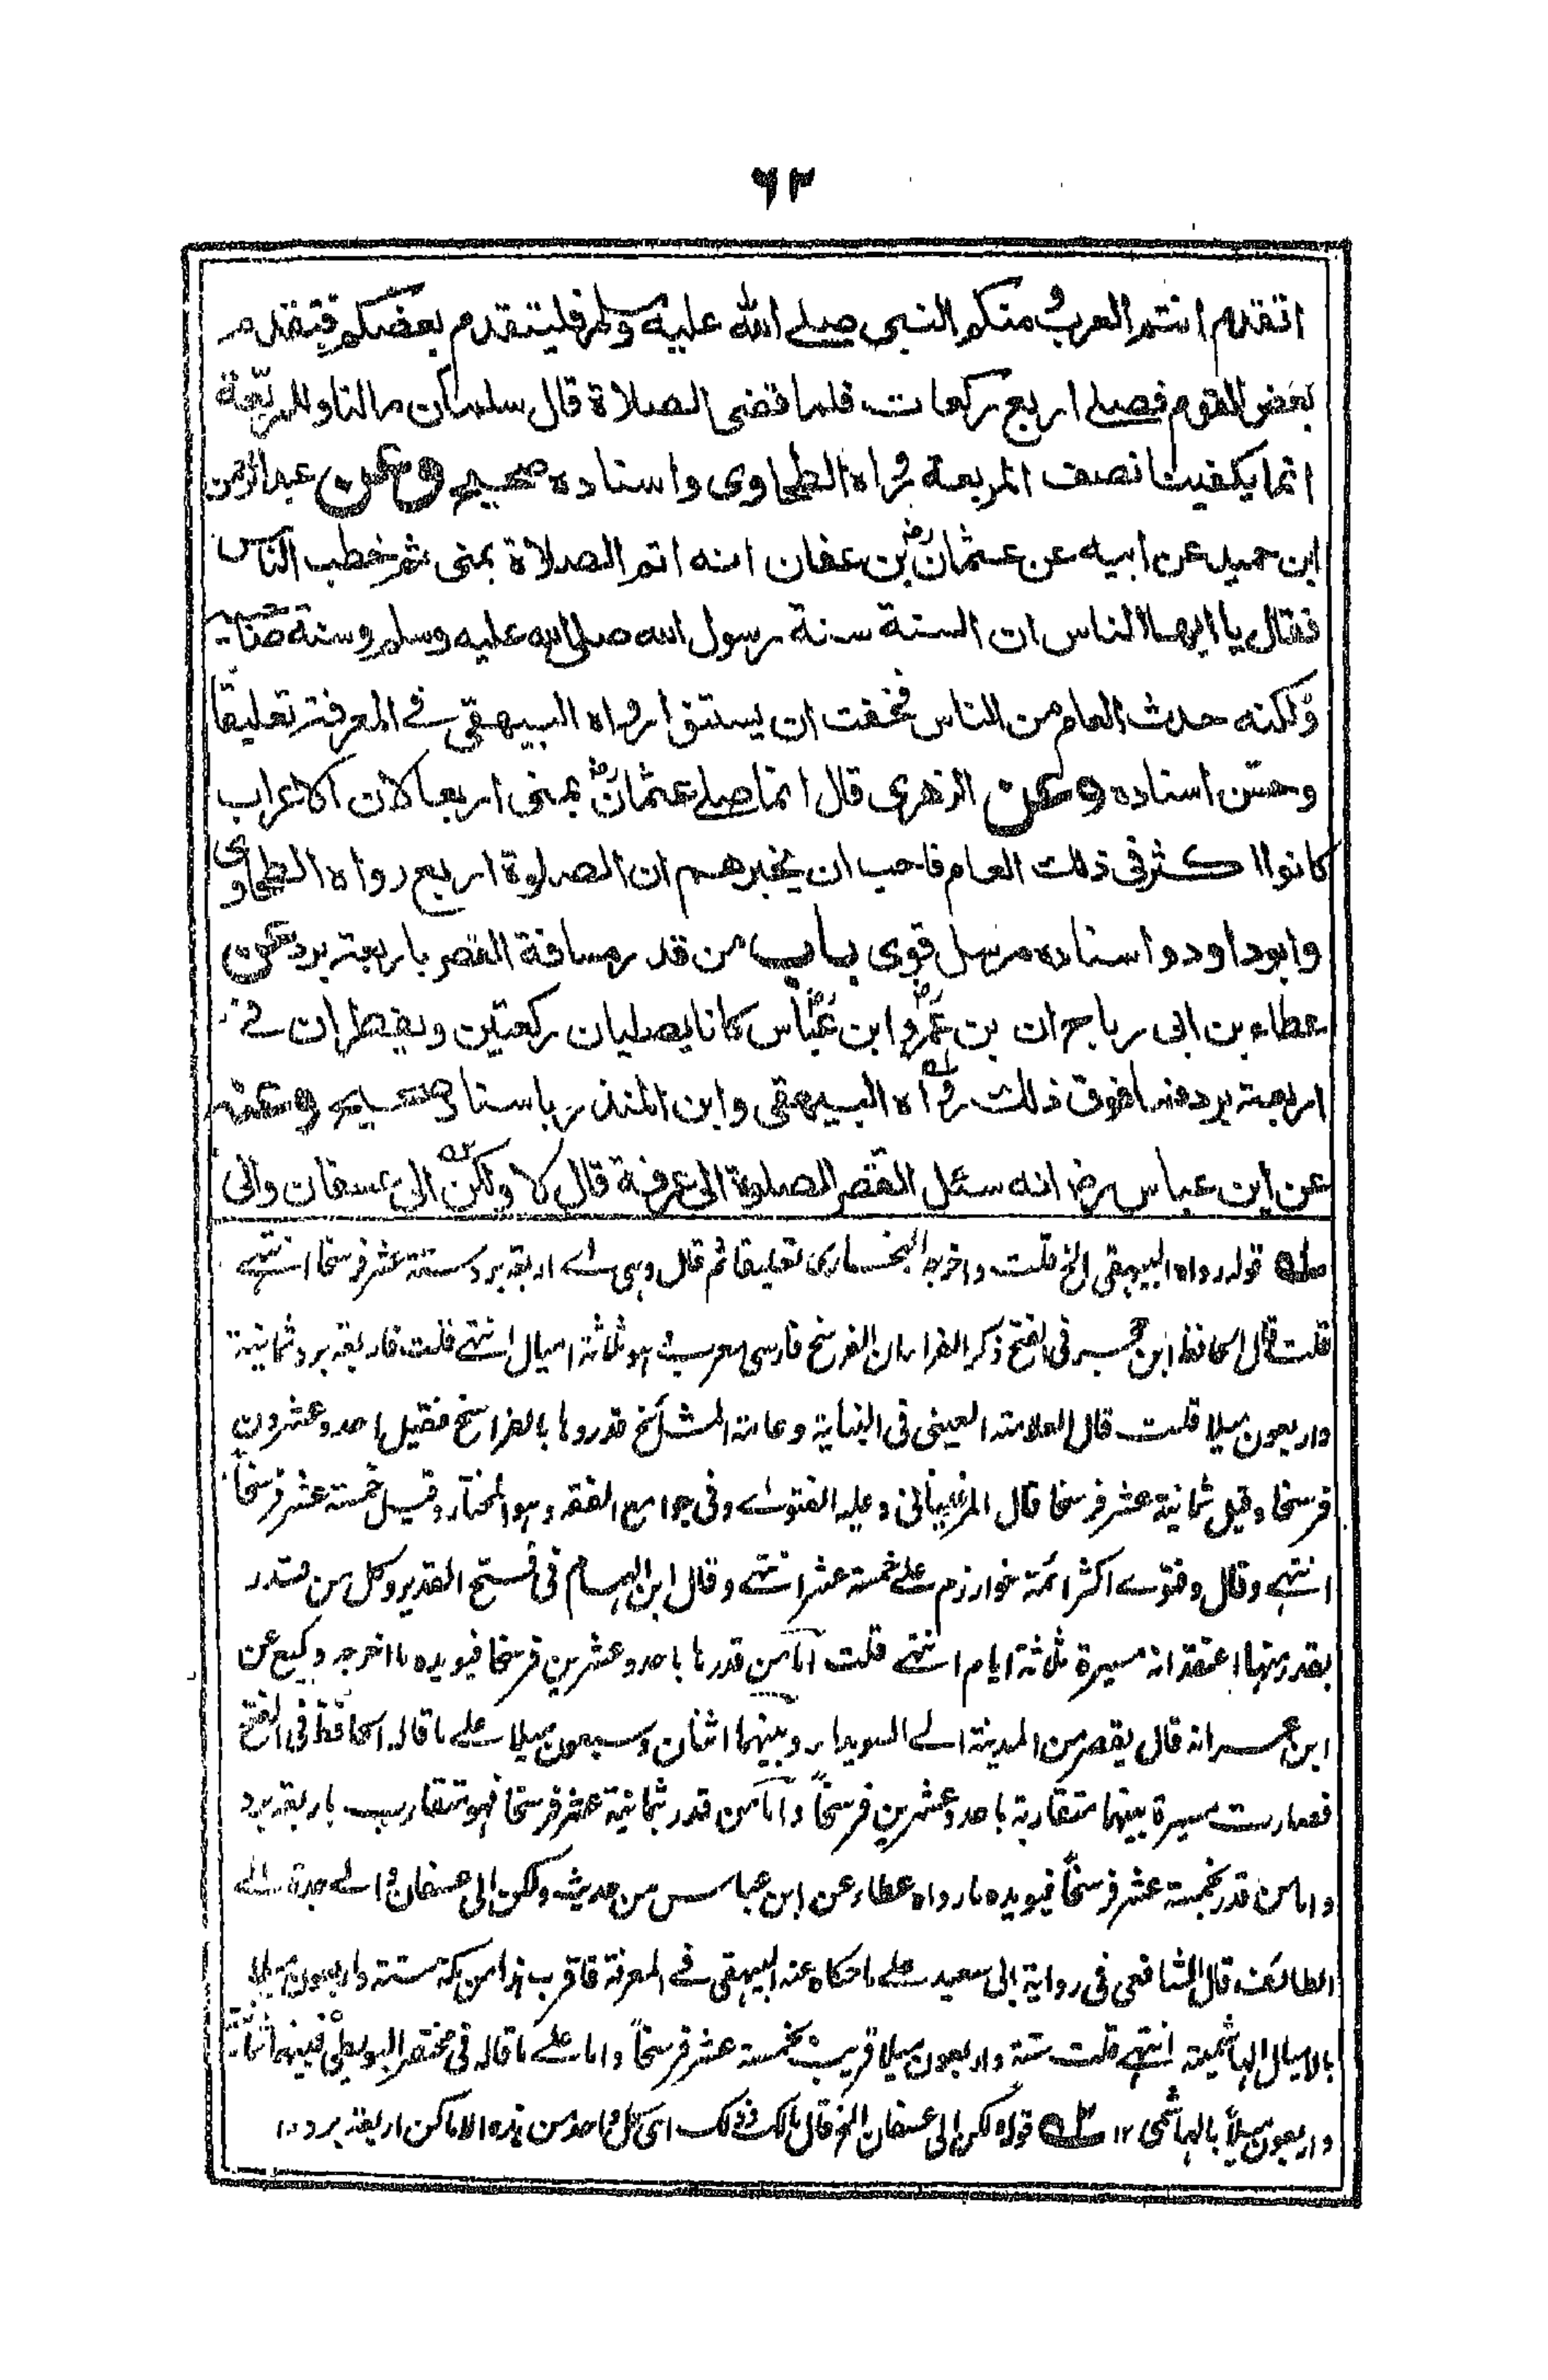 ٦٣
اتقدم انتم العرب ومنكم النبي صلے الله عليه وسلم فليتقدم بعضكم فتقدم
بعض القوم فصلے اربع ركعات فلما قضى الصلاة قال سلمان ما لنا وللمربّعة
انما يكفينا نصف المربعة رواه الطحاوى واسناده صحيح وعن عبد الرحمن
ابن حميد عن ابيه عن عثمان رض بن عفان انه اتم الصلاة بمنى ثم خطب الناس
فقال يا ايها الناس ان السنة سنة رسول الله صلى الله عليه وسلم وسنة صاحبيه
ولكنه حدث العام من الناس فخفت ان يستنوا رواه البيهقى فے المعرفة تعليقًا
وحسّن اسناده وعن الزهرى قال انما صلے عثمان رض بمنى اربعا لان الاعراب
كانوا اكثر فى ذلك العام فاحب ان يخبرهم ان الصلوة اربع رواه الطحاوى
وابوداود واسناده مرسل قوى باب من قدر مسافة القصر باربعة برد عن
عطاء بن ابى رباح ان بن عمر رض وابن عباس رض كانا يصليان ركعتين ويفطران فے
اربعة برد فما فوق ذلك رواه البيهقى وابن المنذر باسناد صحيح وعنه
عن ابن عباس رض انه سئل اتقصر الصلوة الى عرفة قال لا ولكن الى عسفان والى
قوله رواه البيهقى الخ قلت واخرجه البخارى تعليقا ثم قال وہى اے اربعة برد ستة عشر فرسخا انتہے
قلت قال الحافظ ابن حجر فى الفتح ذكر الفراء ان الفرسخ فارسى معرب وہو ثلاثة اميال انتہے قلت فاربعة برد ثمانية
واربعون ميلا قلت قال العلامة العينى فى البناية وعامة المشائخ قدروہا بالفراسخ فقيل احد وعشرون
فرسخا وقيل ثمانية عشر فرسخا قال المرغينانى وعليه الفتوے وفى جوامع الفقه وہو المختار وقيل خمسة عشر فرسخًا
انتہے وقال وفتوے اكثر ائمة خوارزم علے خمسة عشر انتہے وقال ابن الہمام فى فتح القدير وكل من قدر
بقدر منہا اعتقد انه مسيرة ثلاثة ايام انتہے قلت اما من قدرہا باحد وعشرين فرسخا فيويده ما اخرجه وكيع عن
ابن عمر انه قال يقصر من المدينة الے السويداء وبينہما اثنان وسبعون ميلا علے ما قاله الحافظ فى الفتح
فصارت مسيرة بينہما متقاربة باحد وعشرين فرسخًا واما من قدر بثمانية عشر فرسخا فہو متقارب باربعة برد
واما من قدر بخمسة عشر فرسخًا فيويده ما رواه عطاء عن ابن عباس من حديث ولكن الى عسفان والے جدة والے
الطائف قال الشافعى فى رواية ابى سعيد علے ما حكاه عنه البيہقى فے المعرفة فاقرب ہذا من مكة ستة واربعون ميلا
بالاميال الہاشمية انتہے قلت ستة واربعون ميلا قريب بخمسة عشر فرسخًا واما علے ما قاله فى مختصر البويطى فبينہما ثمانية
واربعون ميلًا بالہاشمى ١٢ قوله ولكن الى عسفان الخ قال مالك وذلك اى كل واحد من ہذه الاماكن اربعة برد ١٢